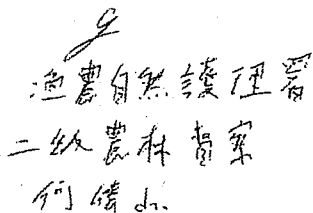 漁農自然護理署
二級農林督察
何偉